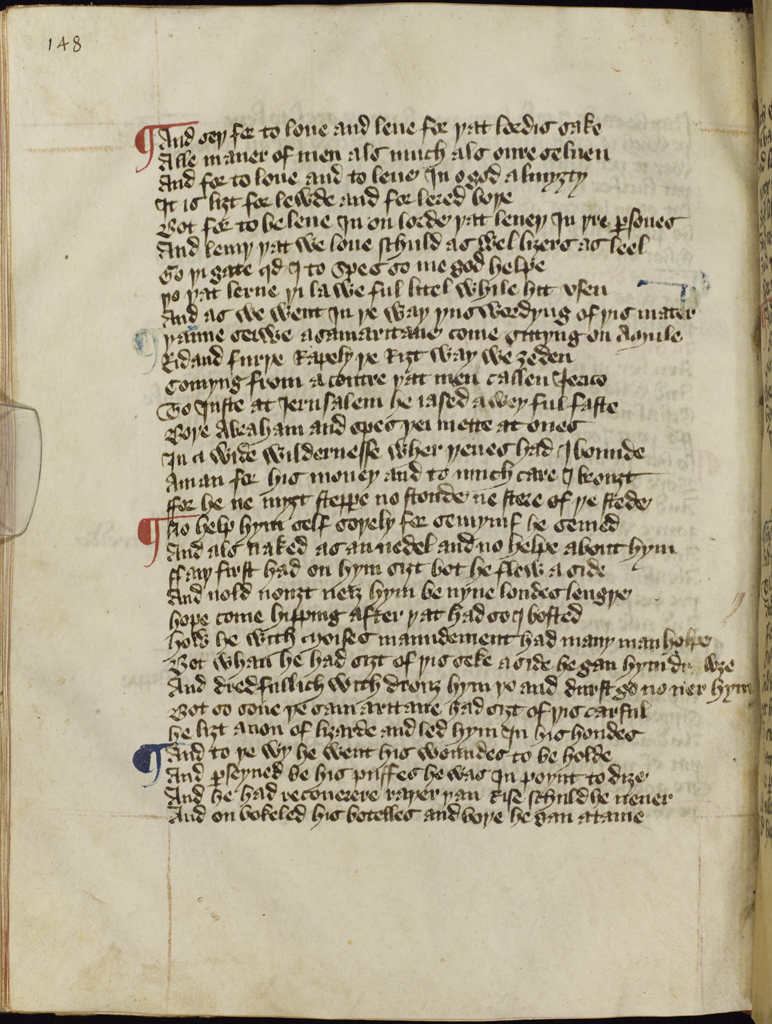 148
And sey for to loue and leue for þat lordis sake
Alle maner of men als much als oure seluen
And for to loue and to leue In o god almyȝty
It is liȝt for lewde and for lered boþe
Bot for to beleue In on lorde þat leueþ In þre psones
And kenyþ þat we loue schuld as wel liȝers as leel
Go þi gate qd I to Spes so me god helpe
Þo þat lerne þi lawe ful litel while hit vsen
And as we went In þe way þus wordyng of þis mater
Þanne seiwe a samaritane come sittyng on a Mule
Ridand furþe Rapely þe Riȝt way we ȝeden
Comyng from a contre þat men callen Jerico
To Juste at Jerusalem he iased awey ful faste
Boþe Abraham and spes þei mette at ones
In a wide wildernesse wher þeues had I bounde
A man for his money and to much care I brouȝt
ffor he ne myȝt steppe no stonde ne stere of þe stede
No help hym self soþely for semyuif he semed
And als naked as an nedel and no helpe about hym
ffaiþ first had on hym siȝt bot he flew a side
And nold nouȝt neiȝ hym be nyne londes lengþe
hope come hipping after þat had so I bosted
how he with Moises maundement had many man holpe
Bot whan he had siȝt of þis seke a side he gan hym
And dredfullich with drouȝ hym þo and durst go no ner hym
Bot so sone þe samaritane had siȝt of þis carful
he liȝt anon of liarde and led hym In his hondes
And to þe wy he went his woundes to be holde
And pseyued be his puffes he was In poynt to diȝe
And he had recouerere raþer þan Rise schuld he neuer
And on bokeled his botelles and boþe he gan atame